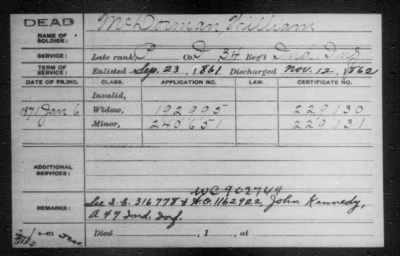 DEAD
NAME OF SOLDIER: McDorman, William
SERVICE: Late rank P Co. D 34 Reg't Ind. Inf.
Enlisted Sep. 23, 1861 Discharged Nov. 12, 1862
DATE OF FILING. CLASS. APPLICATION NO. LAW. CERTIFICATE NO.
Invalid,
1871 Jan 6 Widow, 192995 229130
Minor, 240651 229131
ADDITIONAL SERVICES:
WC 902749
REMARKS: See I.C. 316778 & W.O. 1162922, John Kennedy,
A 47 Ind. Inf.
Died , 1 , at